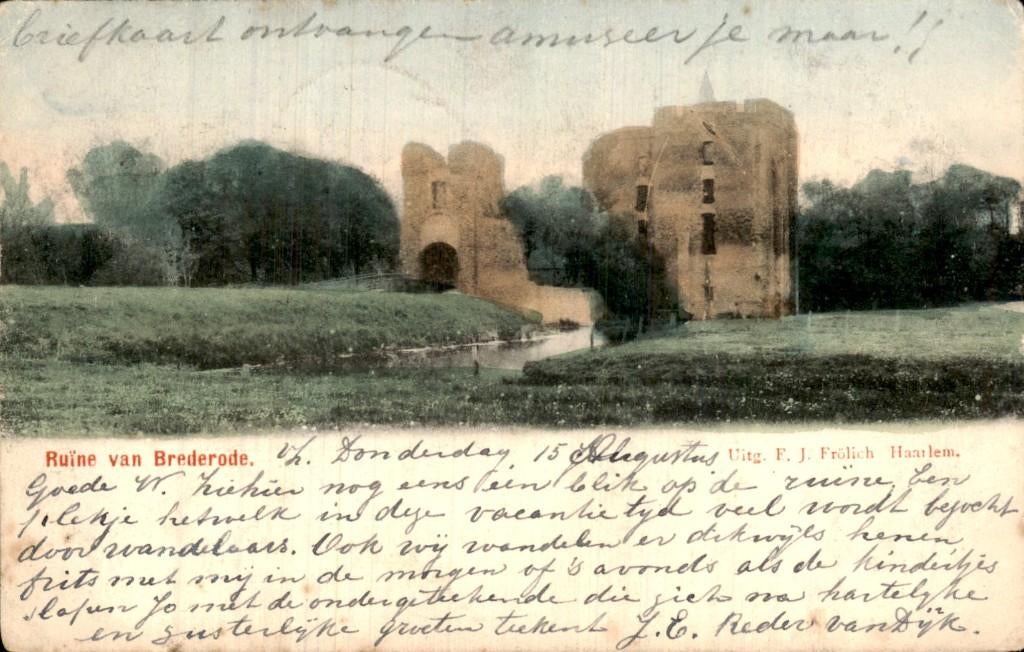 briefkaart ontvangen amuseer je maar!!
Ruïne van Brederode.
Donderdag 15 Augustus
Uitg. F. J. Frölich Haarlem.
Goede W. Ziehier nog eens één blik op de ruïne, Een
plekje hetwelk in deze vacantie tyd veel wordt bezocht
door wandelaars. Ook wy wandelen er dikwyls henen
frits met my in de morgen of 's avonds als de kindertjes
slapen Jo met de ondergeteekende die zich na hartelyke
en zusterlyke groeten teekent J. E. Reder van Dÿk.